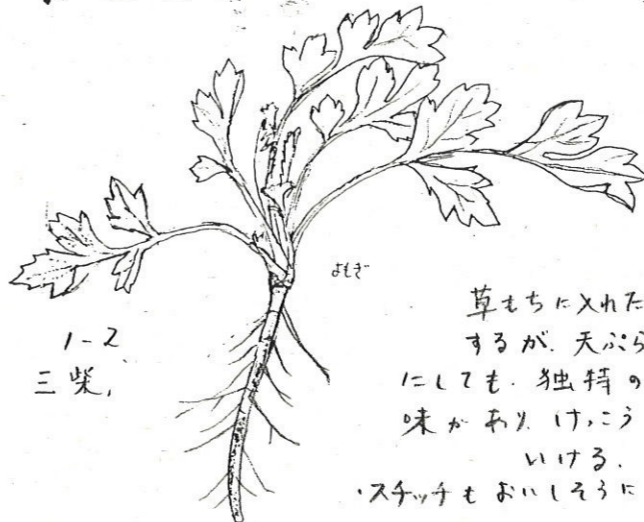 よもぎ
1-2
三柴,
草もちに入れた
するが、天ぷら
にしても、独特の
味があり、けっこう
いける.
・スチッチもおいしそうに